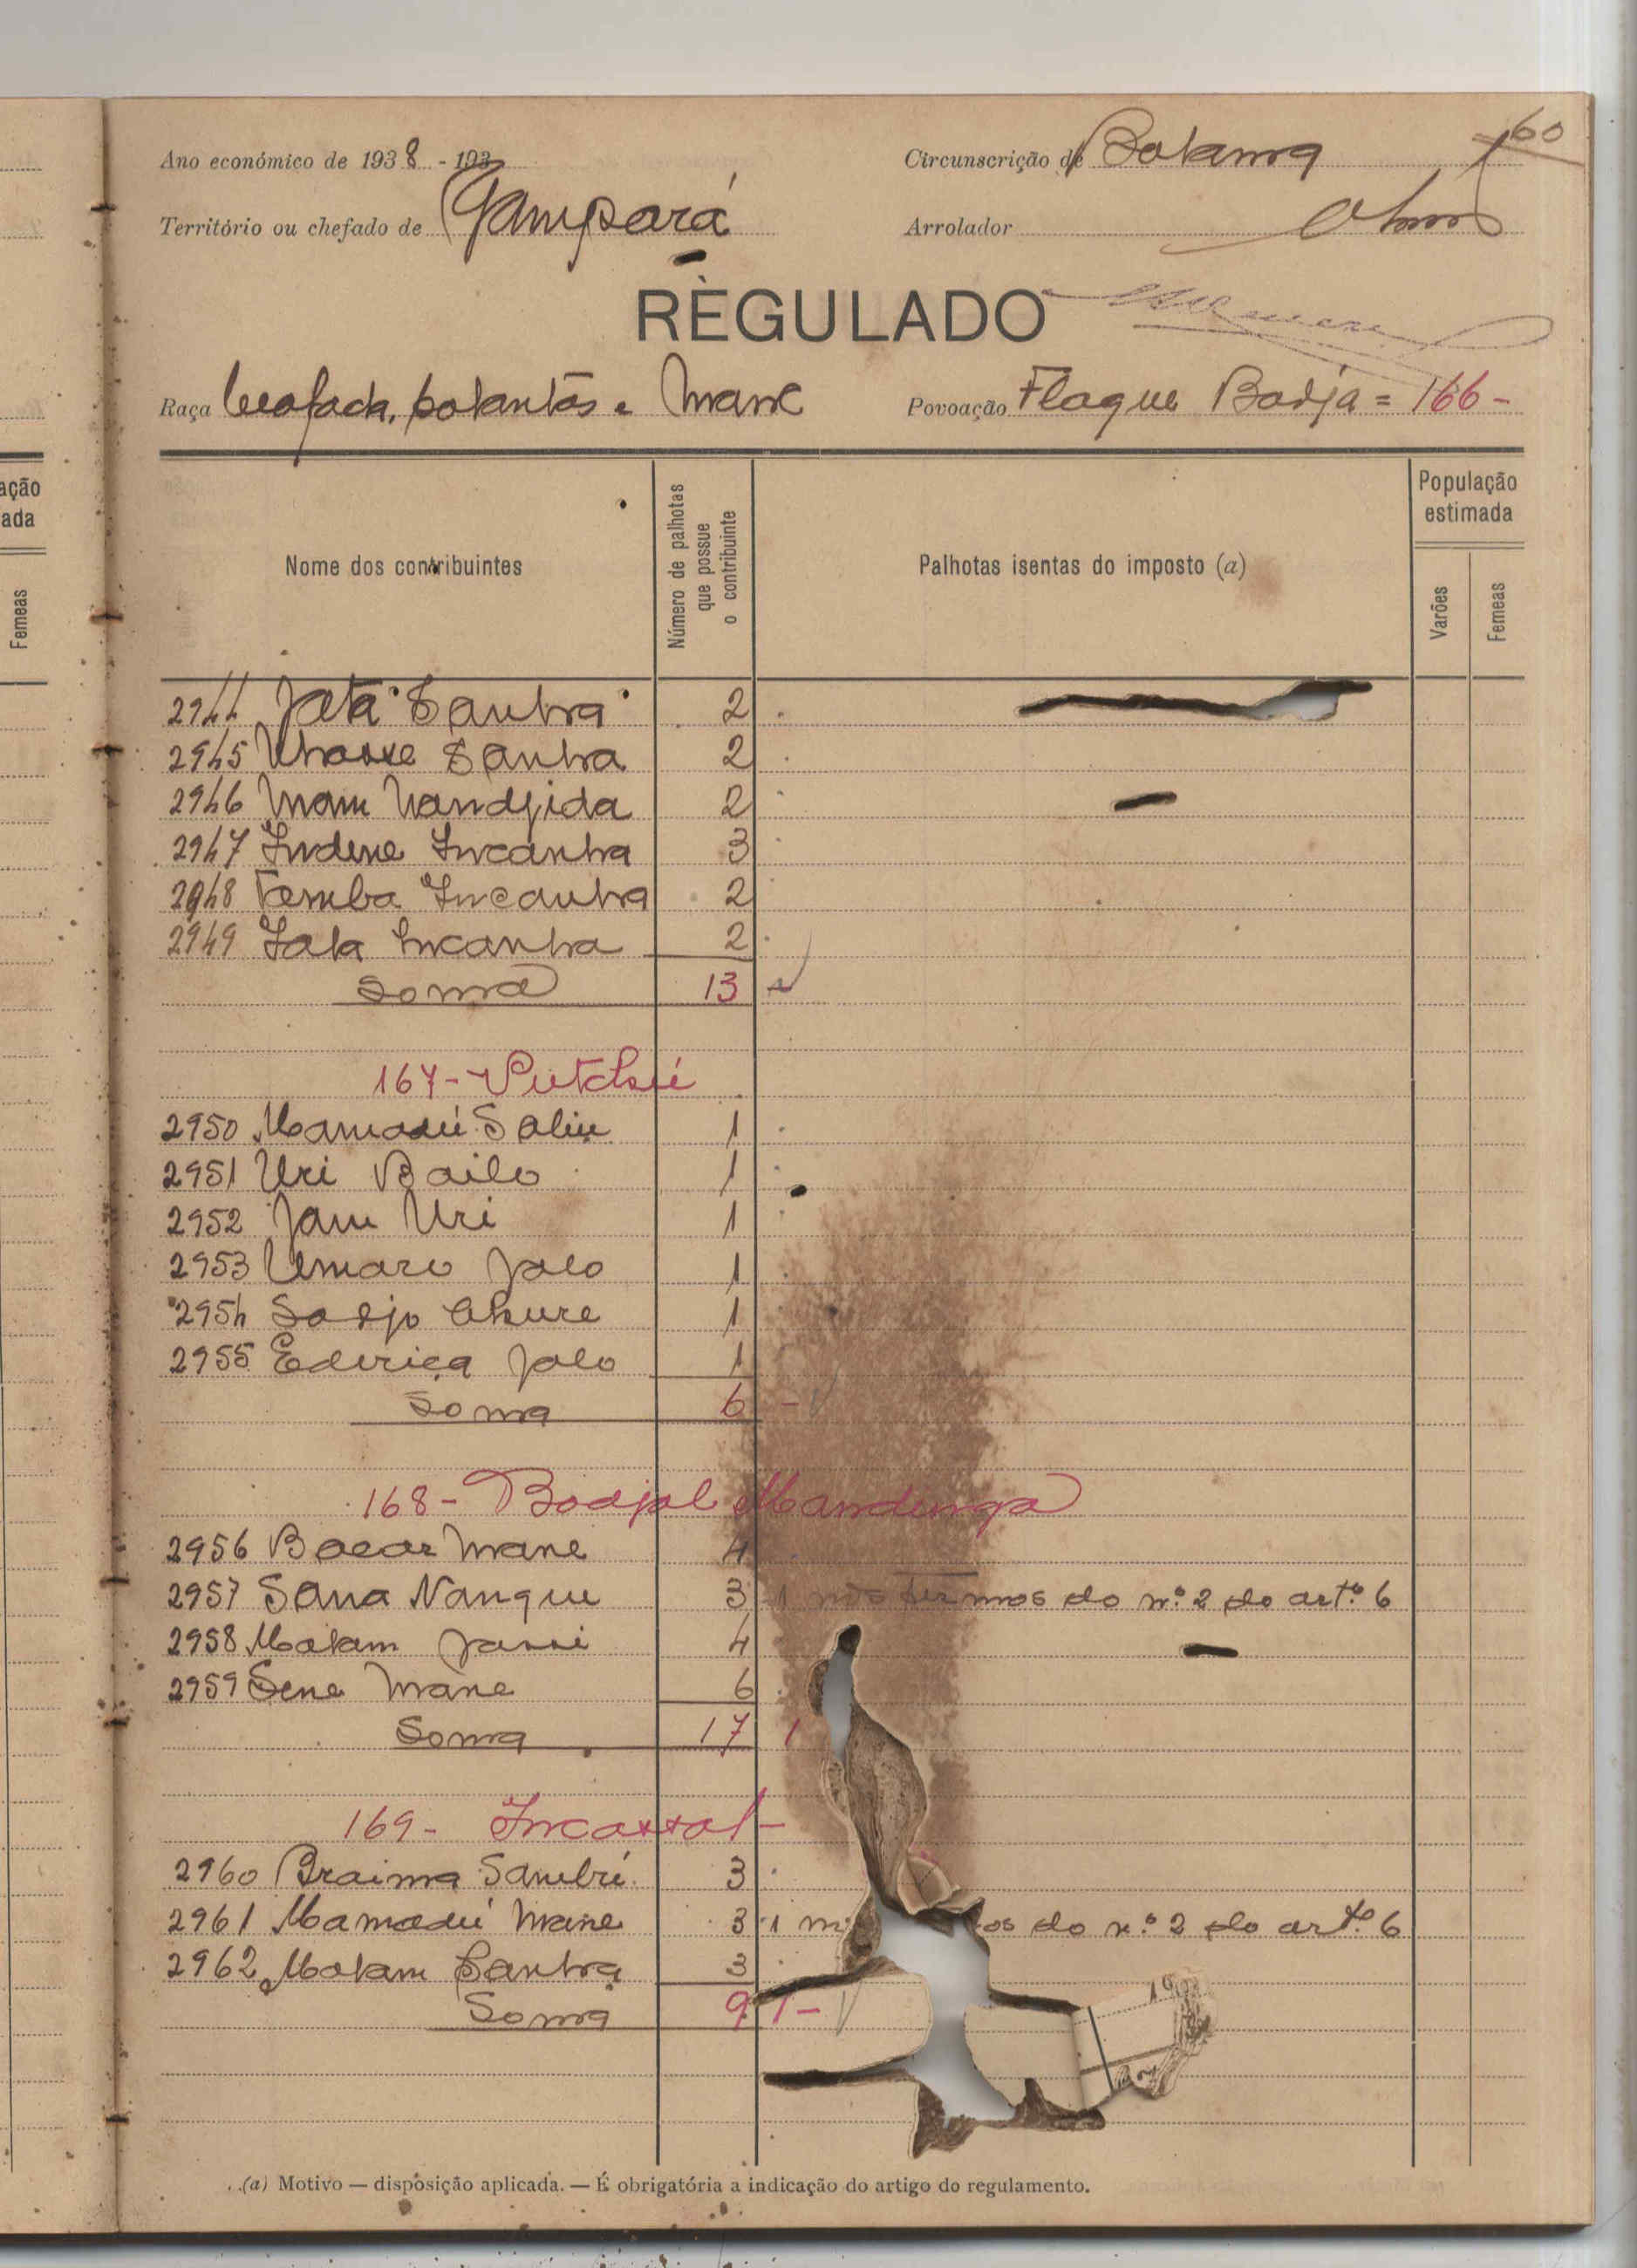 160
Ano económico de 1938 - 193
Circunscrição de Bolama
Território ou chefado de Gampará
Arrolador
REGULADO
Raça beafada, balantas e mané
Povoação Flaque Badja = 166 -
ação
ada
Femeas
Nome dos contribuintes
Número de palhotas que possue o contribuinte
Palhotas isentas do imposto (a)
População estimada
Varões
Femeas
2944 Jata Sanha 2
2945 Sanha 2
2946 Mam Nandjida 2
2947 Indene Incanha 3
2948 Temba Incanha 2
2949 Iala Incanha 2
Soma 13
167 - Putchú
2950 Mamadú Saliu 1
2951 Uri Bailo 1
2952 Jam Uri 1
2953 Umaro Jalo 1
2954 Sadjo 1
2955 Ederiça Jalo 1
Soma 6 -
168 - Badjal Mandinga
2956 Bacar Mane 4
2957 Sana Nanque 3 1 nos termos do n.º 2 do art.º 6
2958 Malam Jassi 4
2959 Sene Mane 6
Soma 17 1
169 - Incassol -
2960 Braima Sambú 3
2961 Mamadú Mane 3 1 n os do n.º 2 do art.º 6
2962 Malam Sanha 3
Soma 9 1 -
(a) Motivo — disposição aplicada. — É obrigatória a indicação do artigo do regulamento.